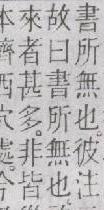 書所無也彼注
故曰書所無也
來者甚多。非皆
本濟西穴處今